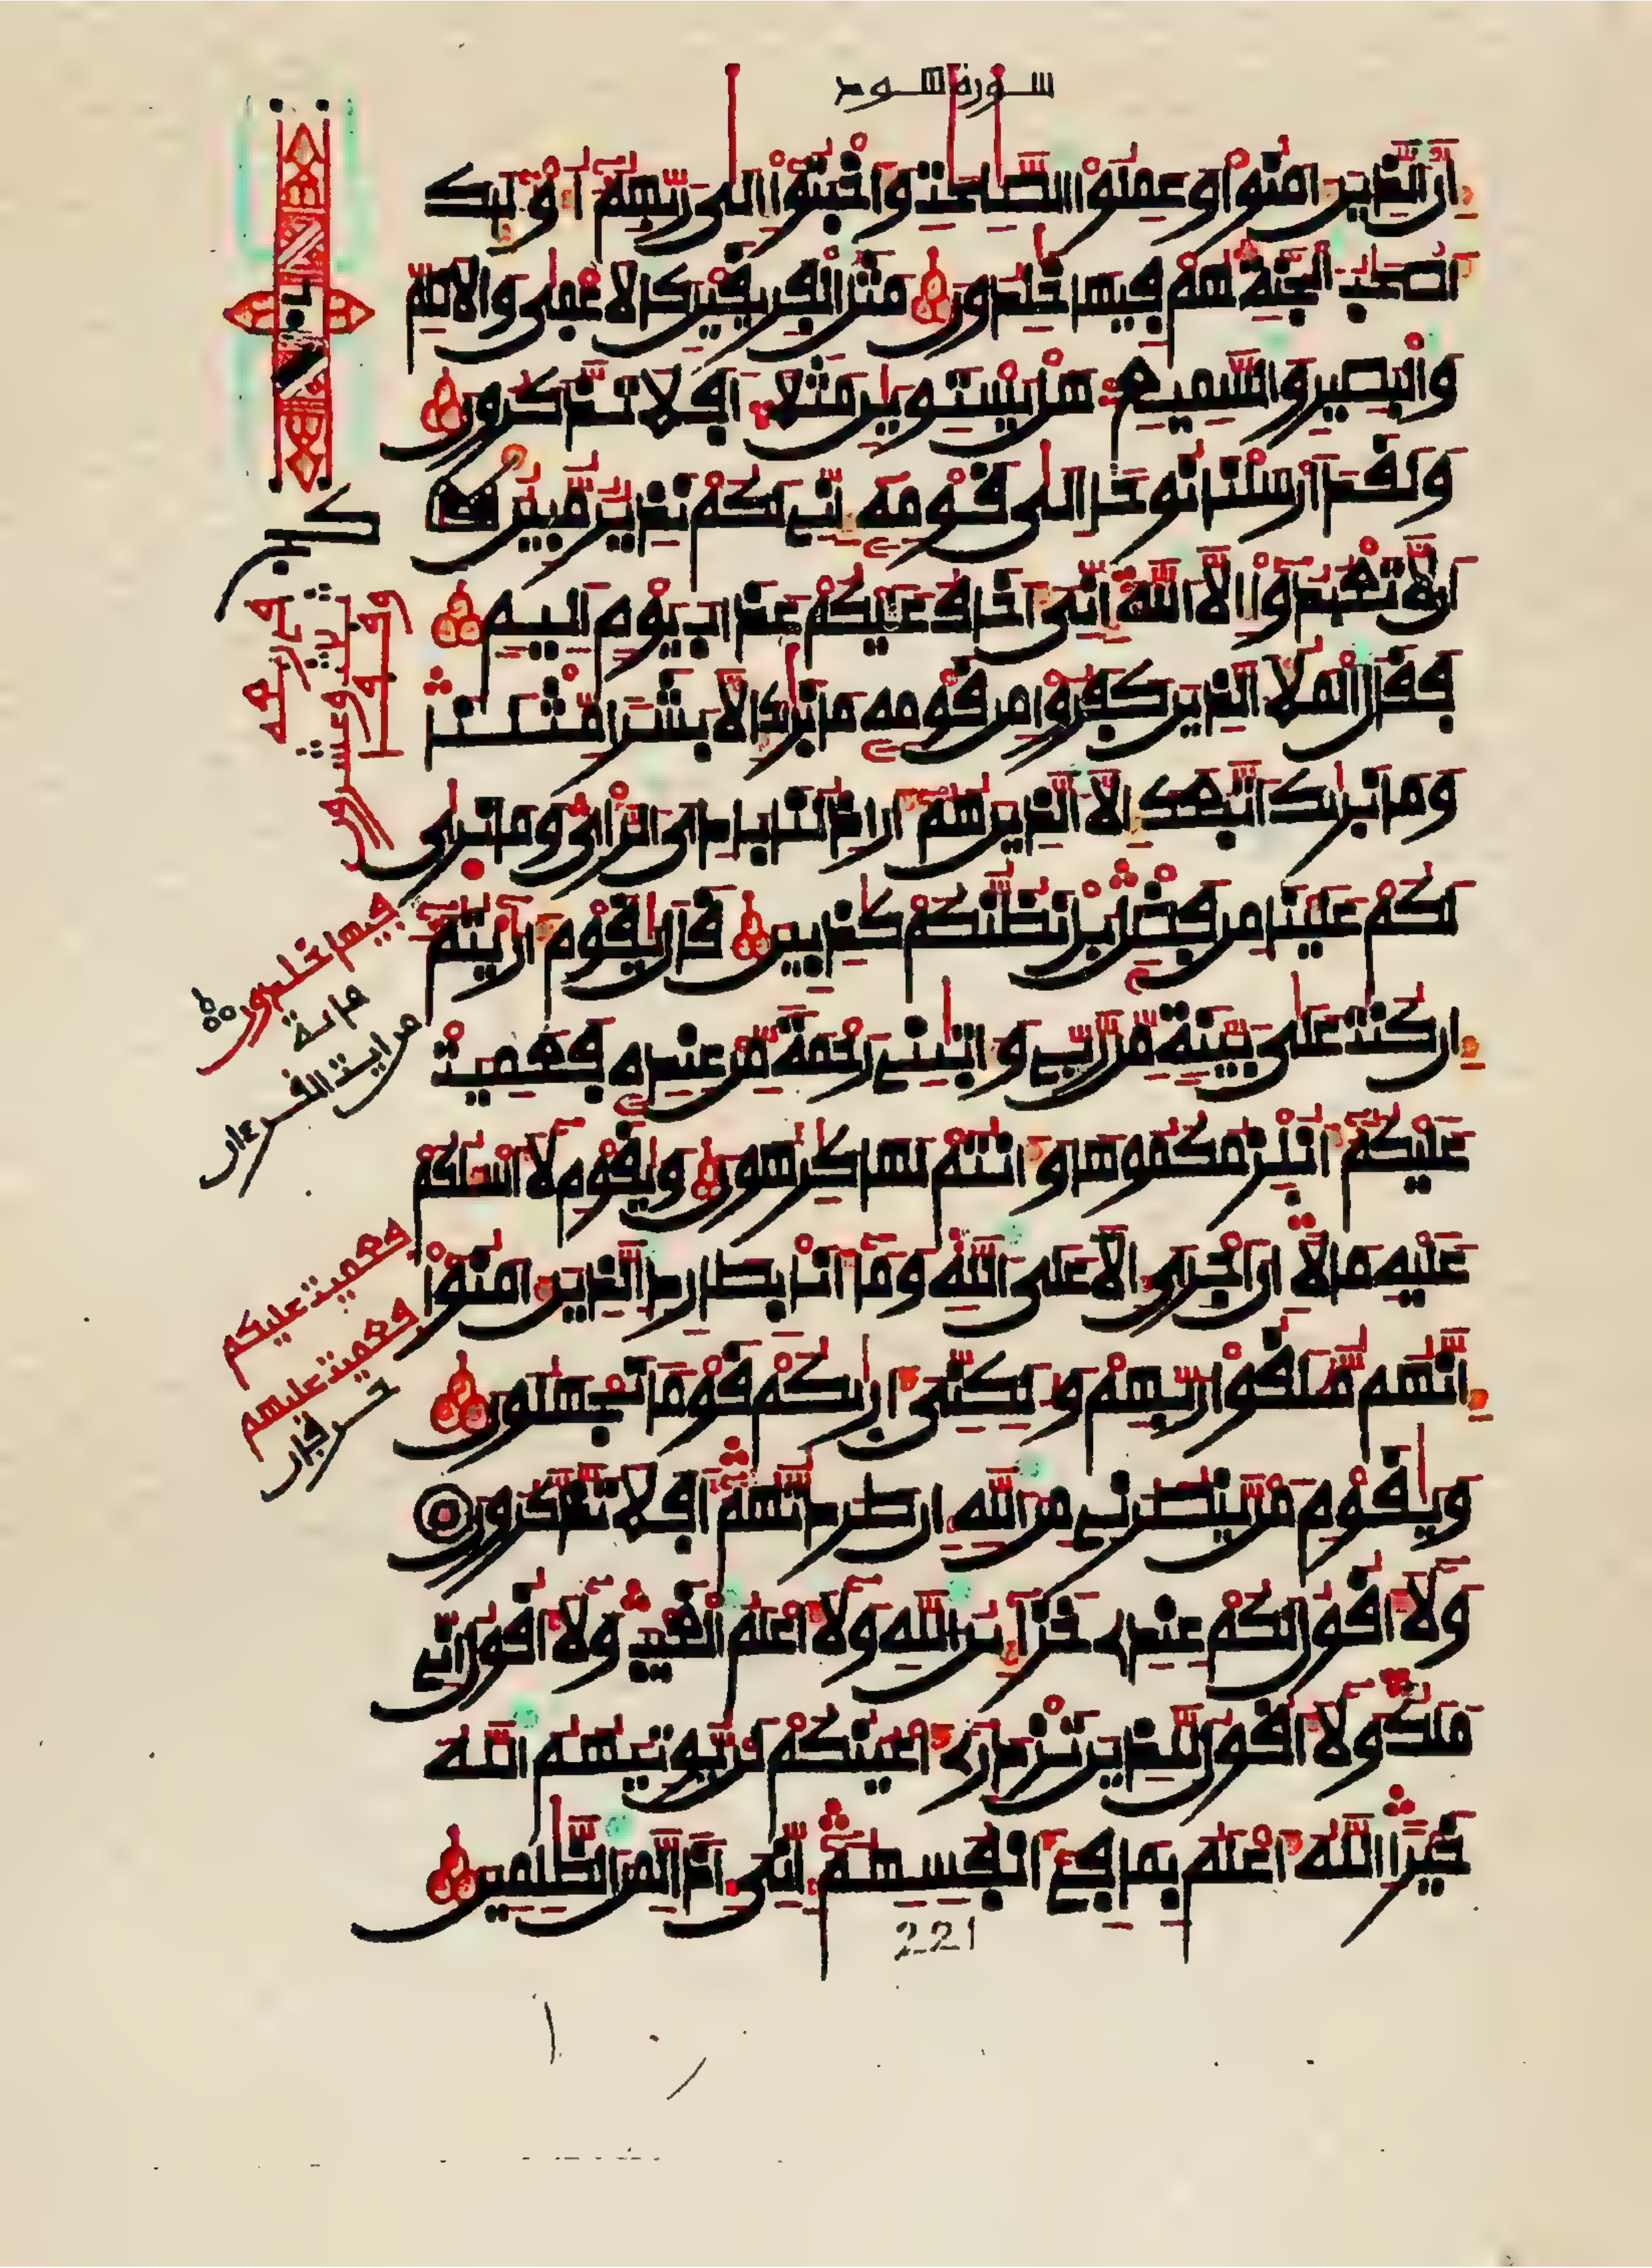 سورة هود
إن الذين امنوا وعملوا الصلحت وأخبتوا إلى ربهم أوليك
أصحب الجنة هم فيها خلدون مثل الفريقين كالاعمى والاصم
والبصير والسميع هل يستوين مثلا افلا تذكرون
ولقد ارسلنا نوحا الى قومه إني لكم نذير مبين
ان لا تعبدوا إلا الله إني أخاف عليكم عذاب يوم اليم
فقال الملا الذين كفروا من قومه ما نريك إلا بشرا مثلنا
وما نريك اتبعك إلا الذين هم أراذلنا بادي الرأي وما نرى
لكم علينا من فضل بل نظنكم كذبين قال يقوم أريتم
إن كنت على بينة من ربي واتيني رحمة من عنده فعميت
عليكم أنلزمكموها وأنتم لها كرهون ويقوم لا أسلكم
عليه مالا إن أجري إلا على الله وما أنا بطارد الذين امنوا
إنهم ملقوا ربهم ولكني أريكم قوما تجهلون
ويقوم من ينصرني من الله إن طردتهم أفلا تذكرون
ولا أقول لكم عندي خزاين الله ولا أعلم الغيب ولا أقول إني
ملك ولا أقول للذين تزدري أعينكم لن يوتيهم الله
خيرا الله أعلم بما في أنفسهم إني إذا لمن الظلمين
221
فيها خلدون
ماية
من ايت القرءان
فعميت عليكم
فعميت عليهم